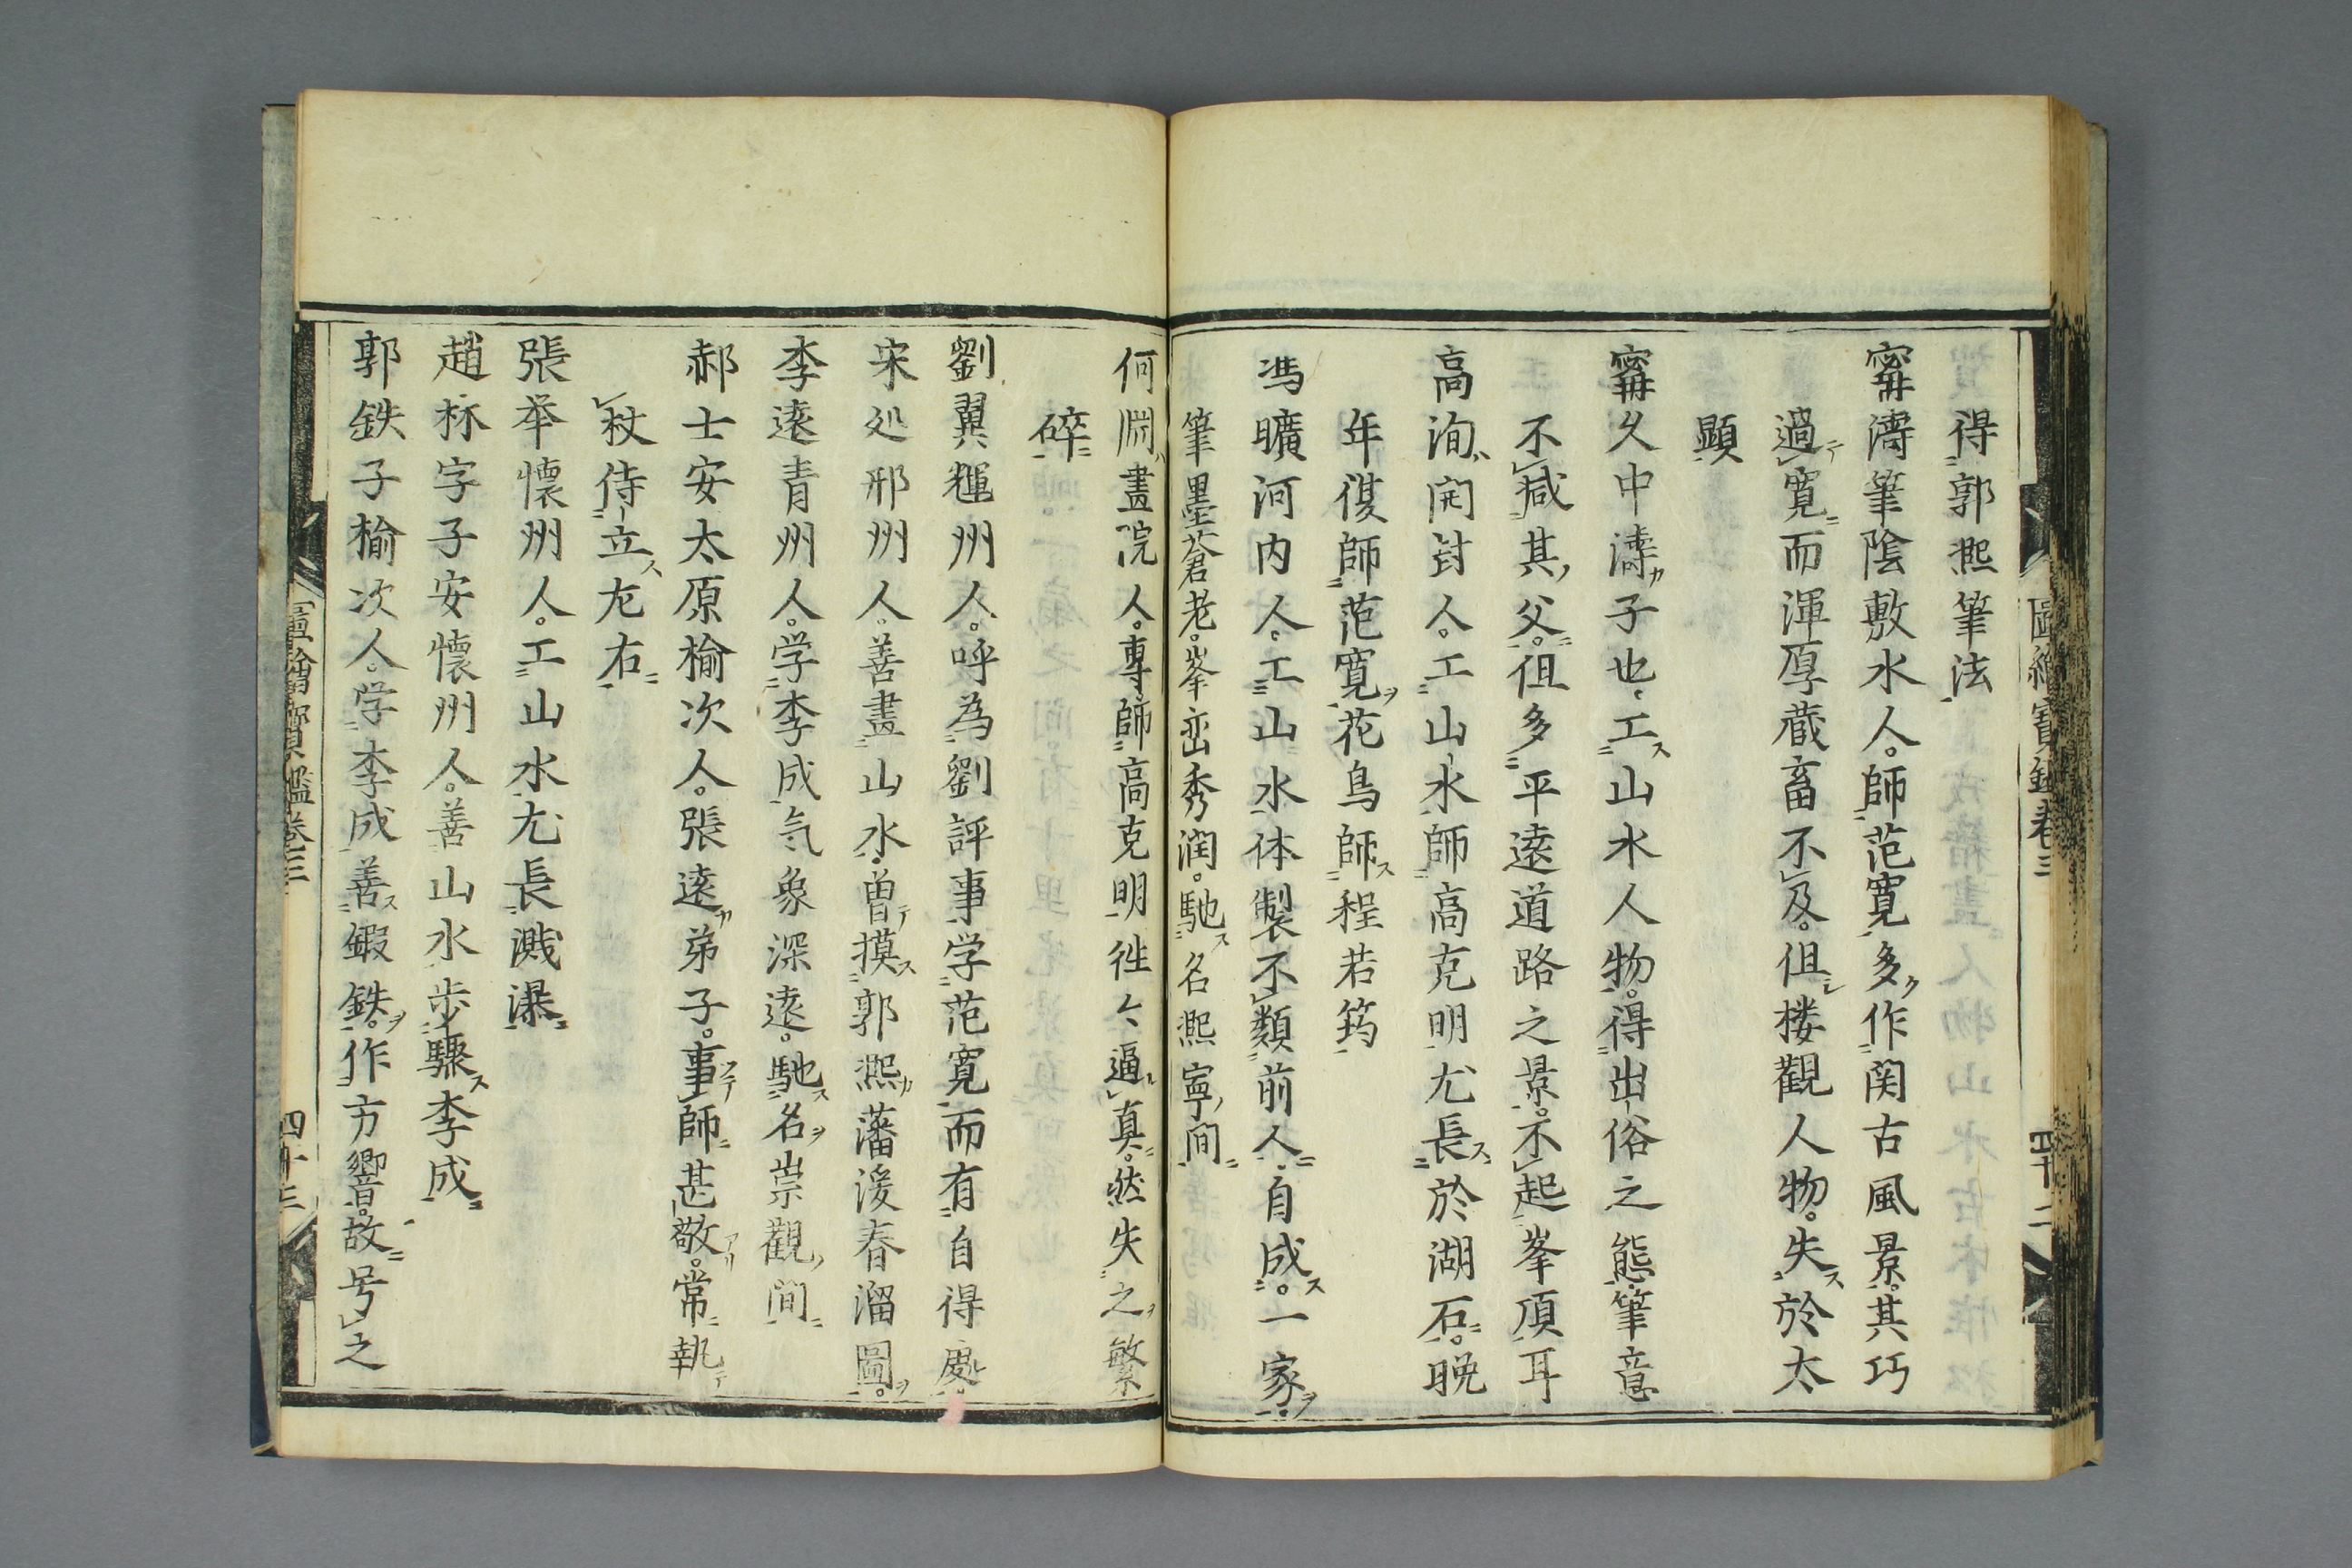 圖繪寶鑑卷三
四十二
得郭熙筆法
寗濤筆陰敷水人。師范寛多作関古風景。其巧
過寛而渾厚蔵畜不及。但楼觀人物。失於太
顕
寗久中濤子也、工山水人物。得出俗之態筆意
不减其父。但多平逺道路之景。不起峯頂耳
高洵開封人。工山水師高克明尤長於湖石。晚
年復師范寛花鳥師程若筠
馮曠河内人。工山水体製不類前人。自成。一家。
筆墨蒼老。峯巒秀潤。馳名熙寧間
何淵畫院人。専師高克明徃々逼真。然失之繁
碎
劉翼輝州人。呼為劉評事学范寛而有自得處。
宋処邢州人。善畫山水。曽摸郭熙藩湲春溜圖。
李逺青州人。学李成気象深逺。馳名崇觀間
郝士安太原榆次人。張逺弟子。事師甚敬。常執
杖侍立左右
張举懷州人。工山水尤長濺瀑
趙林字子安懷州人。善山水歩驟李成
郭鉄子榆次人。学李成善鍜鉄。作方響。故号之
圖繪寶鑑卷三
四十三